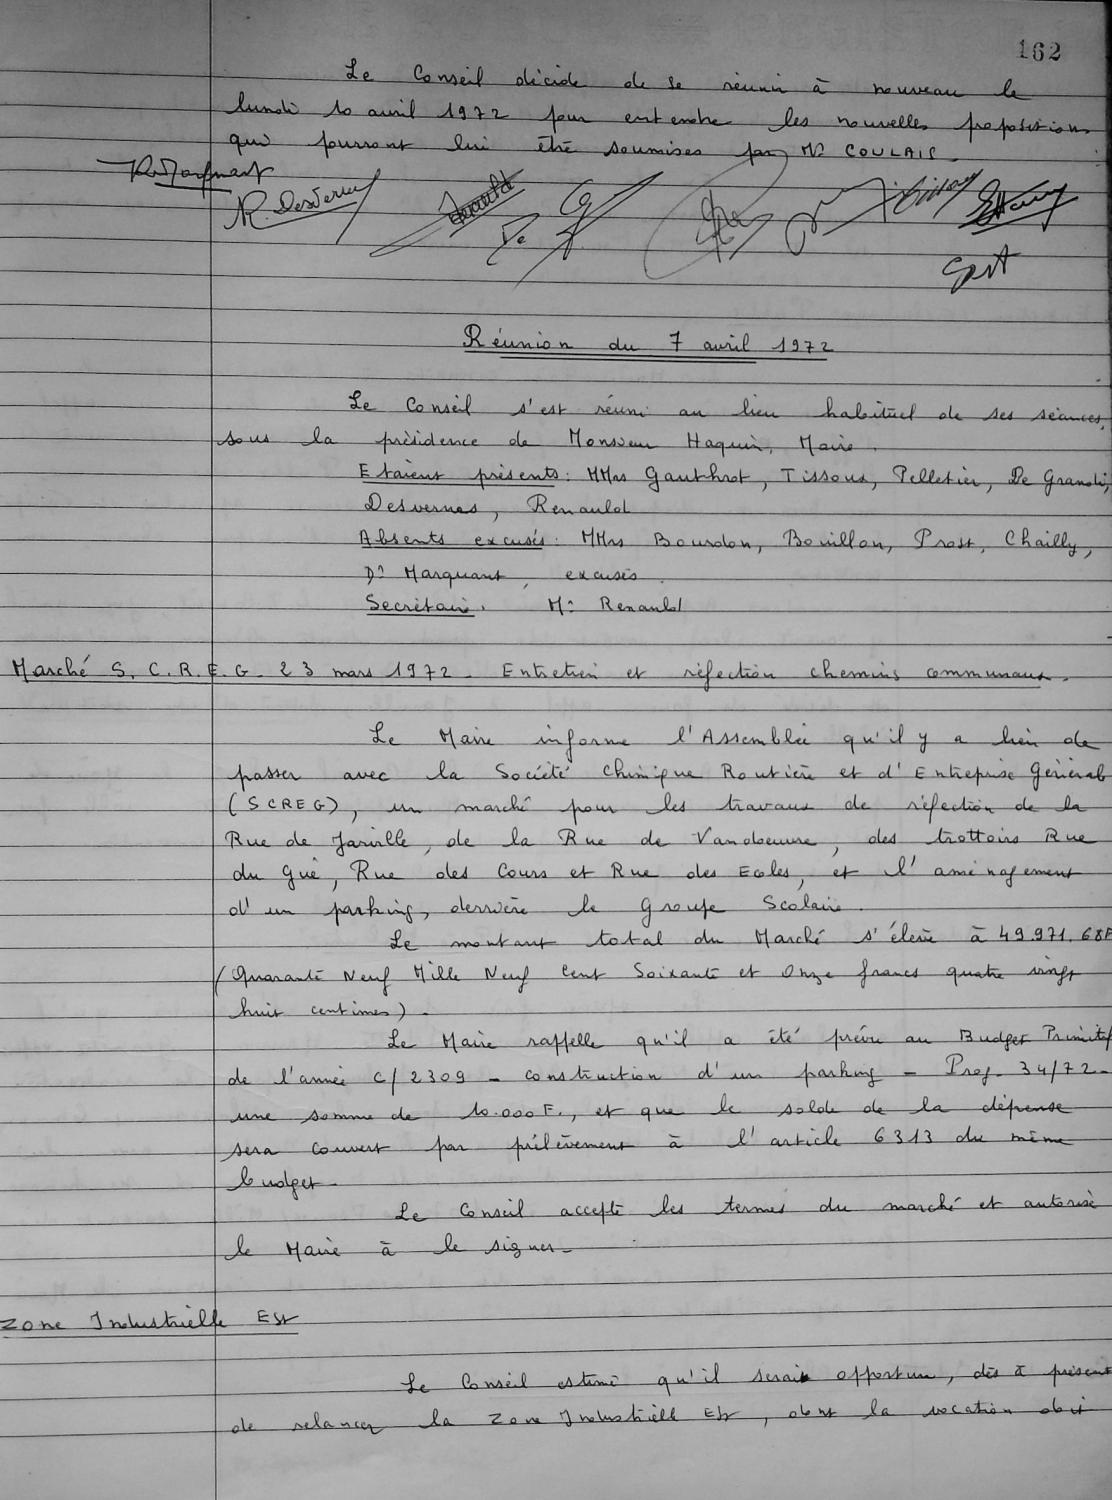 162
Le Conseil décide de se réunir à nouveau le
lundi 10 avril 1972 pour entendre les nouvelles propositions
qui pourront lui être soumises par Mr COULAIS.
R. Desvernes
Renauld
Réunion du 7 avril 1972
Le Conseil s'est réuni au lieu habituel de ses séances,
sous la présidence de Monsieur Haquin, Maire.
Etaient présents : MMrs Gauthrot, Tissoux, Pelletier, De Grandi,
Desvernes, Renauld
Absents excusés : MMrs Bourdon, Bouillon, Prost, Chailly,
Dr Marquant, excusés.
Secrétaire. Mr Renauld
Marché S.C.R.E.G. 23 mars 1972. Entretien et réfection chemins communaux.
Le Maire informe l'Assemblée qu'il y a lieu de
passer avec la Société Chimique Routière et d'Entreprise Générale
(SCREG), un marché pour les travaux de réfection de la
Rue de Jarville, de la Rue de Vandoeuvre, des trottoirs Rue
du Gué, Rue des Cours et Rue des Ecoles, et l'aménagement
d'un parking, derrière le Groupe Scolaire.
Le montant total du Marché s'élève à 49.971.68F
(Quarante Neuf Mille Neuf Cent Soixante et Onze francs quatre vingt
huit centimes).
Le Maire rappelle qu'il a été prévu au Budget Primitif
de l'année C/2309 - construction d'un parking - Prog. 34/72 -
une somme de 10.000F., et que le solde de la dépense
sera couvert par prélèvement à l'article 6313 du même
budget.
Le Conseil accepte les termes du marché et autorise
le Maire à le signer.
Zone Industrielle Est
Le Conseil estime qu'il serait opportun, dès à présent
de relancer la Zone Industrielle Est, dont la vocation doit